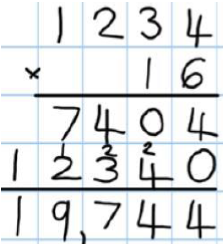 1234
× 16
7404
1 2 2
12340
19,744